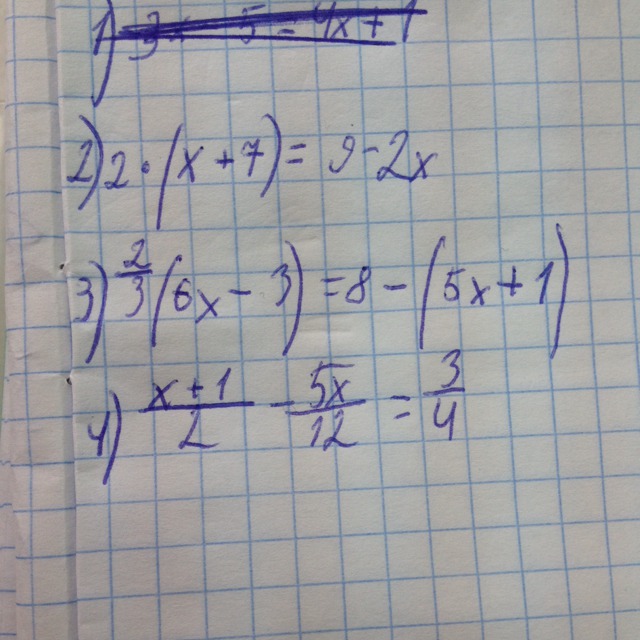 1) 3x - 5 = 4x + 1
2) 2·(x + 7) = 9 - 2x
3) 2/3 (6x - 3) = 8 - (5x + 1)
4) x + 1/2 - 5x/12 = 3/4